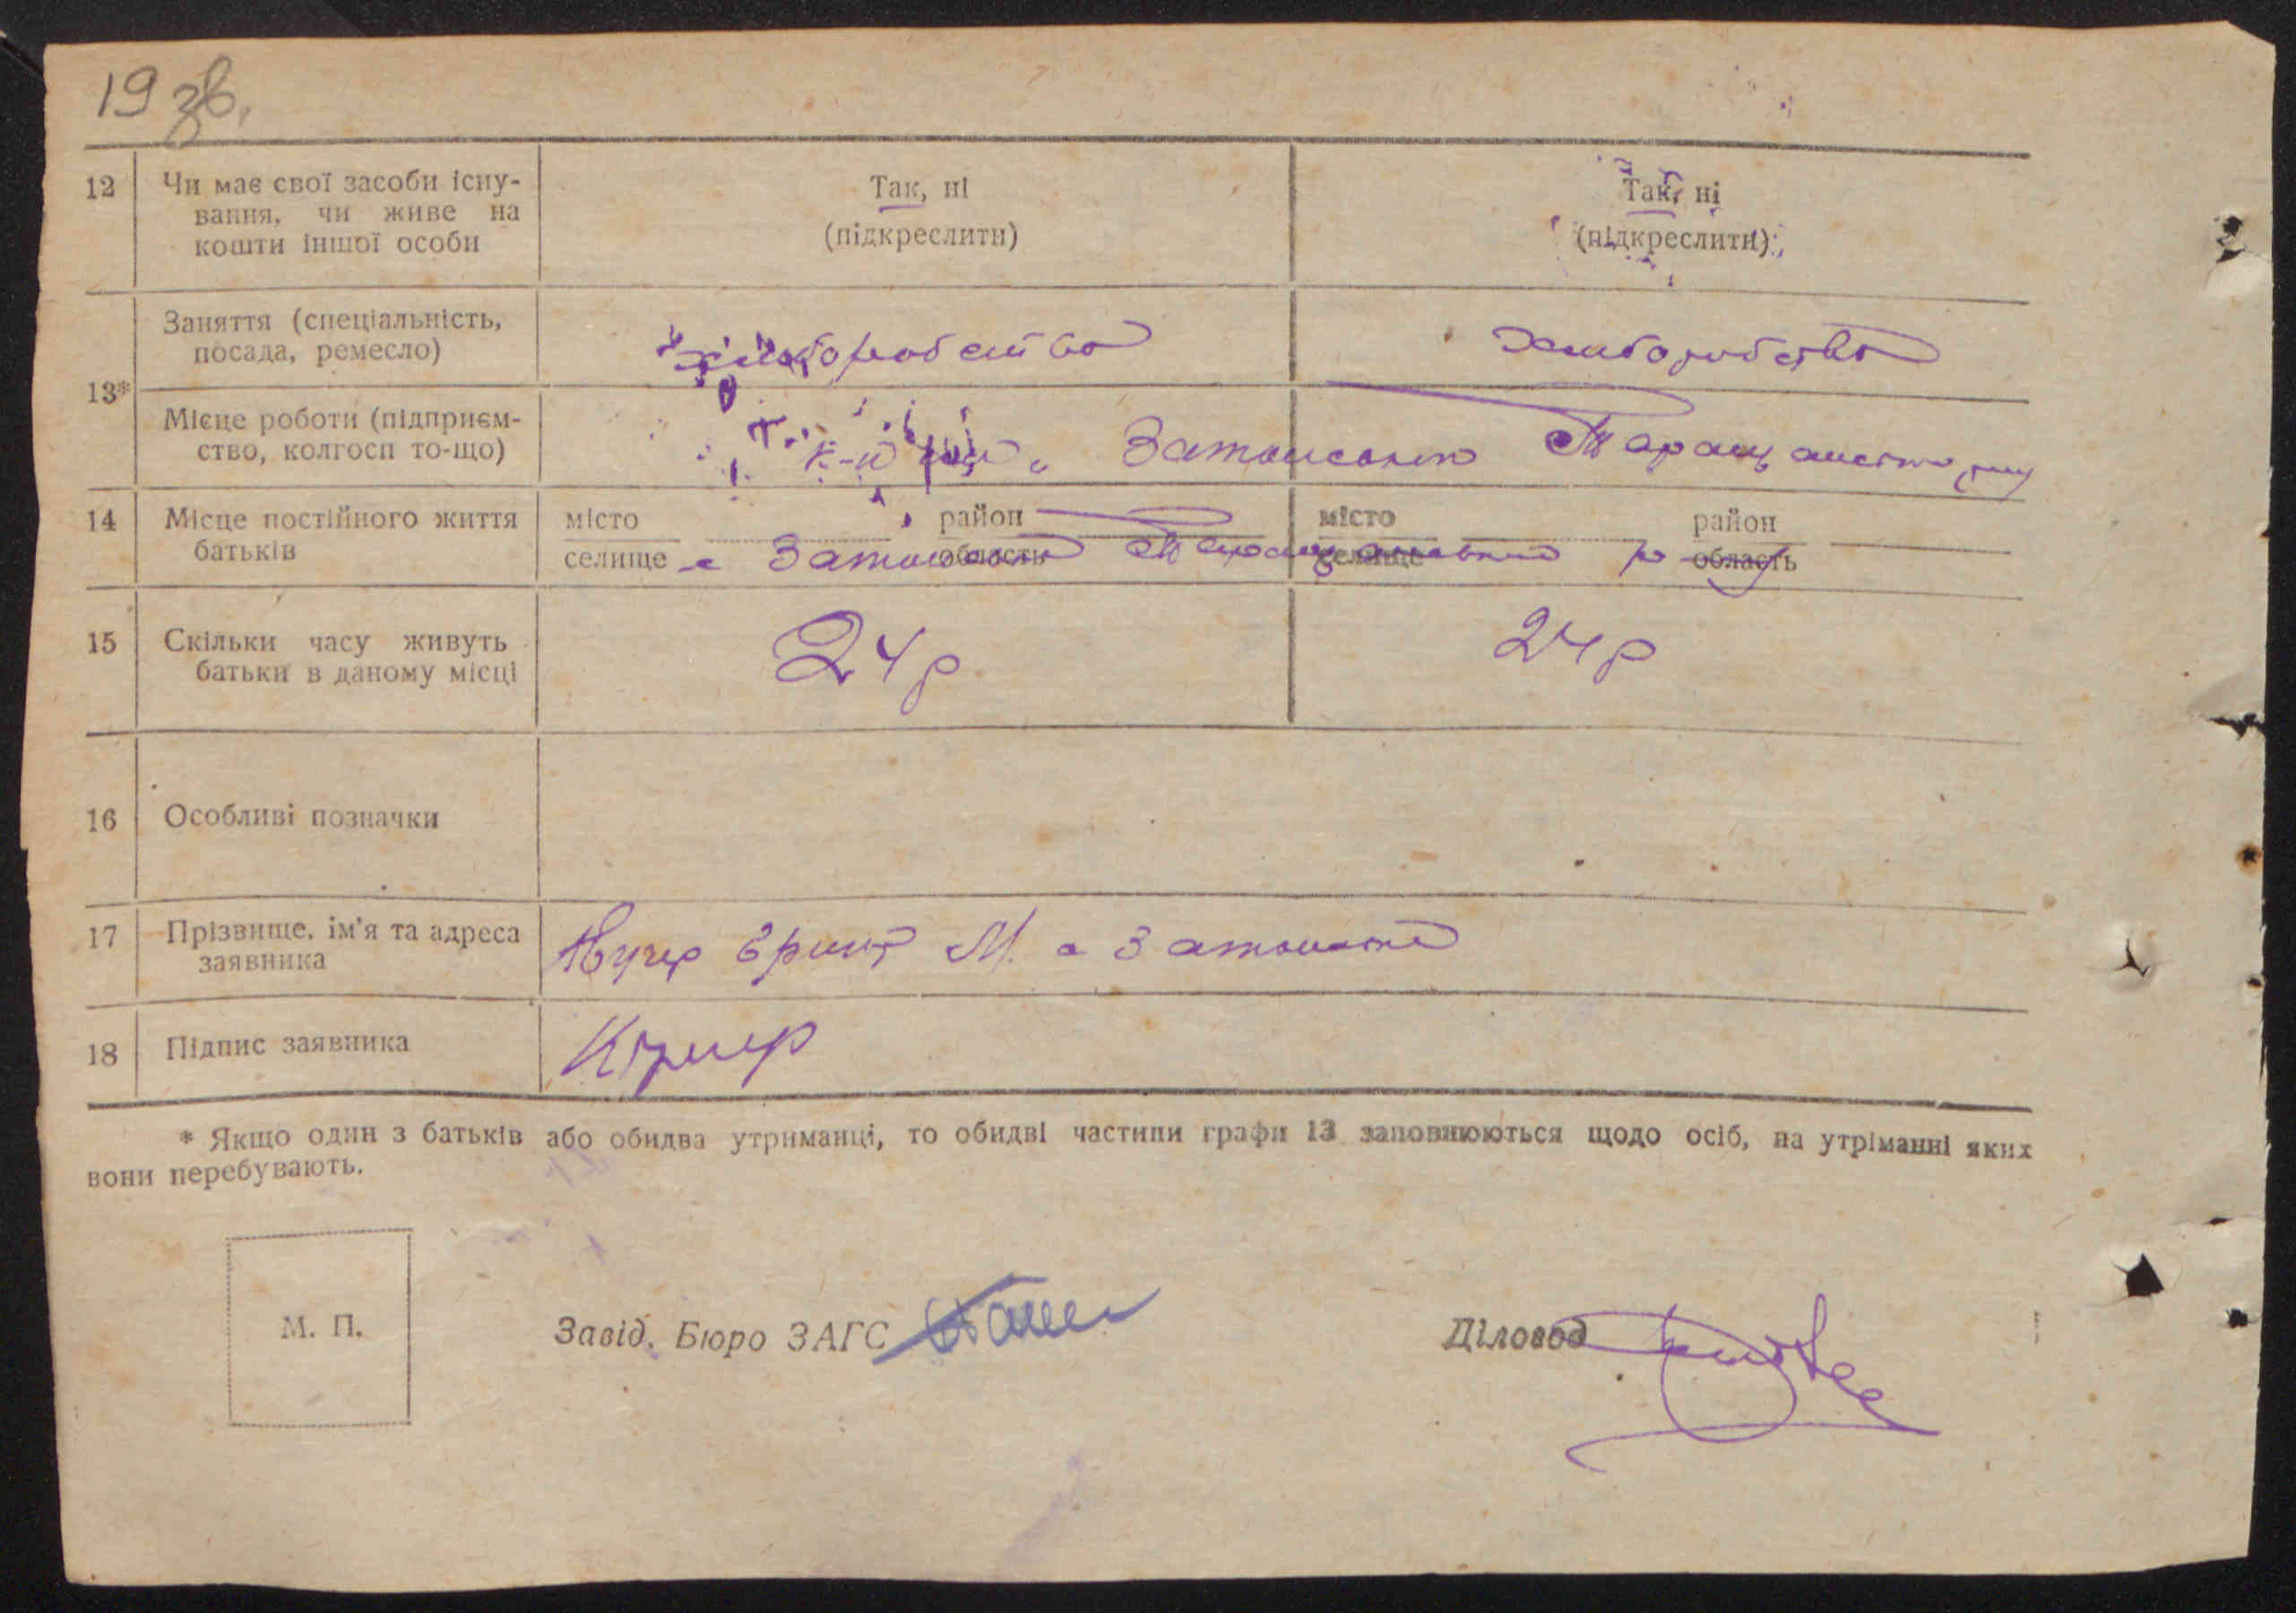 19 зв.
12 Чи має свої засоби існу- Так, ні Так, ні
вання, чи живе на (підкреслити) (підкреслити)
кошти іншої особи
13* Заняття (спеціальність, хліборобство хліборобство
посада, ремесло)
Місце роботи (підприєм- Затонсько Таращанського р-ну
ство, колгосп то-що)
14 Місце постійного життя місто район місто район
батьків селище с Затонськ область Таращанського селище р-ну область
15 Скільки часу живуть 24 р 24 р
батьки в даному місці
16 Особливі позначки
17 Прізвище, ім'я та адреса М. с Затонське
заявника
18 Підпис заявника
* Якщо один з батьків або обидва утриманці, то обидві частини графи 13 заповнюються щодо осіб, на утріманні яких
вони перебувають.
М. П. Завід. Бюро ЗАГС Діловод